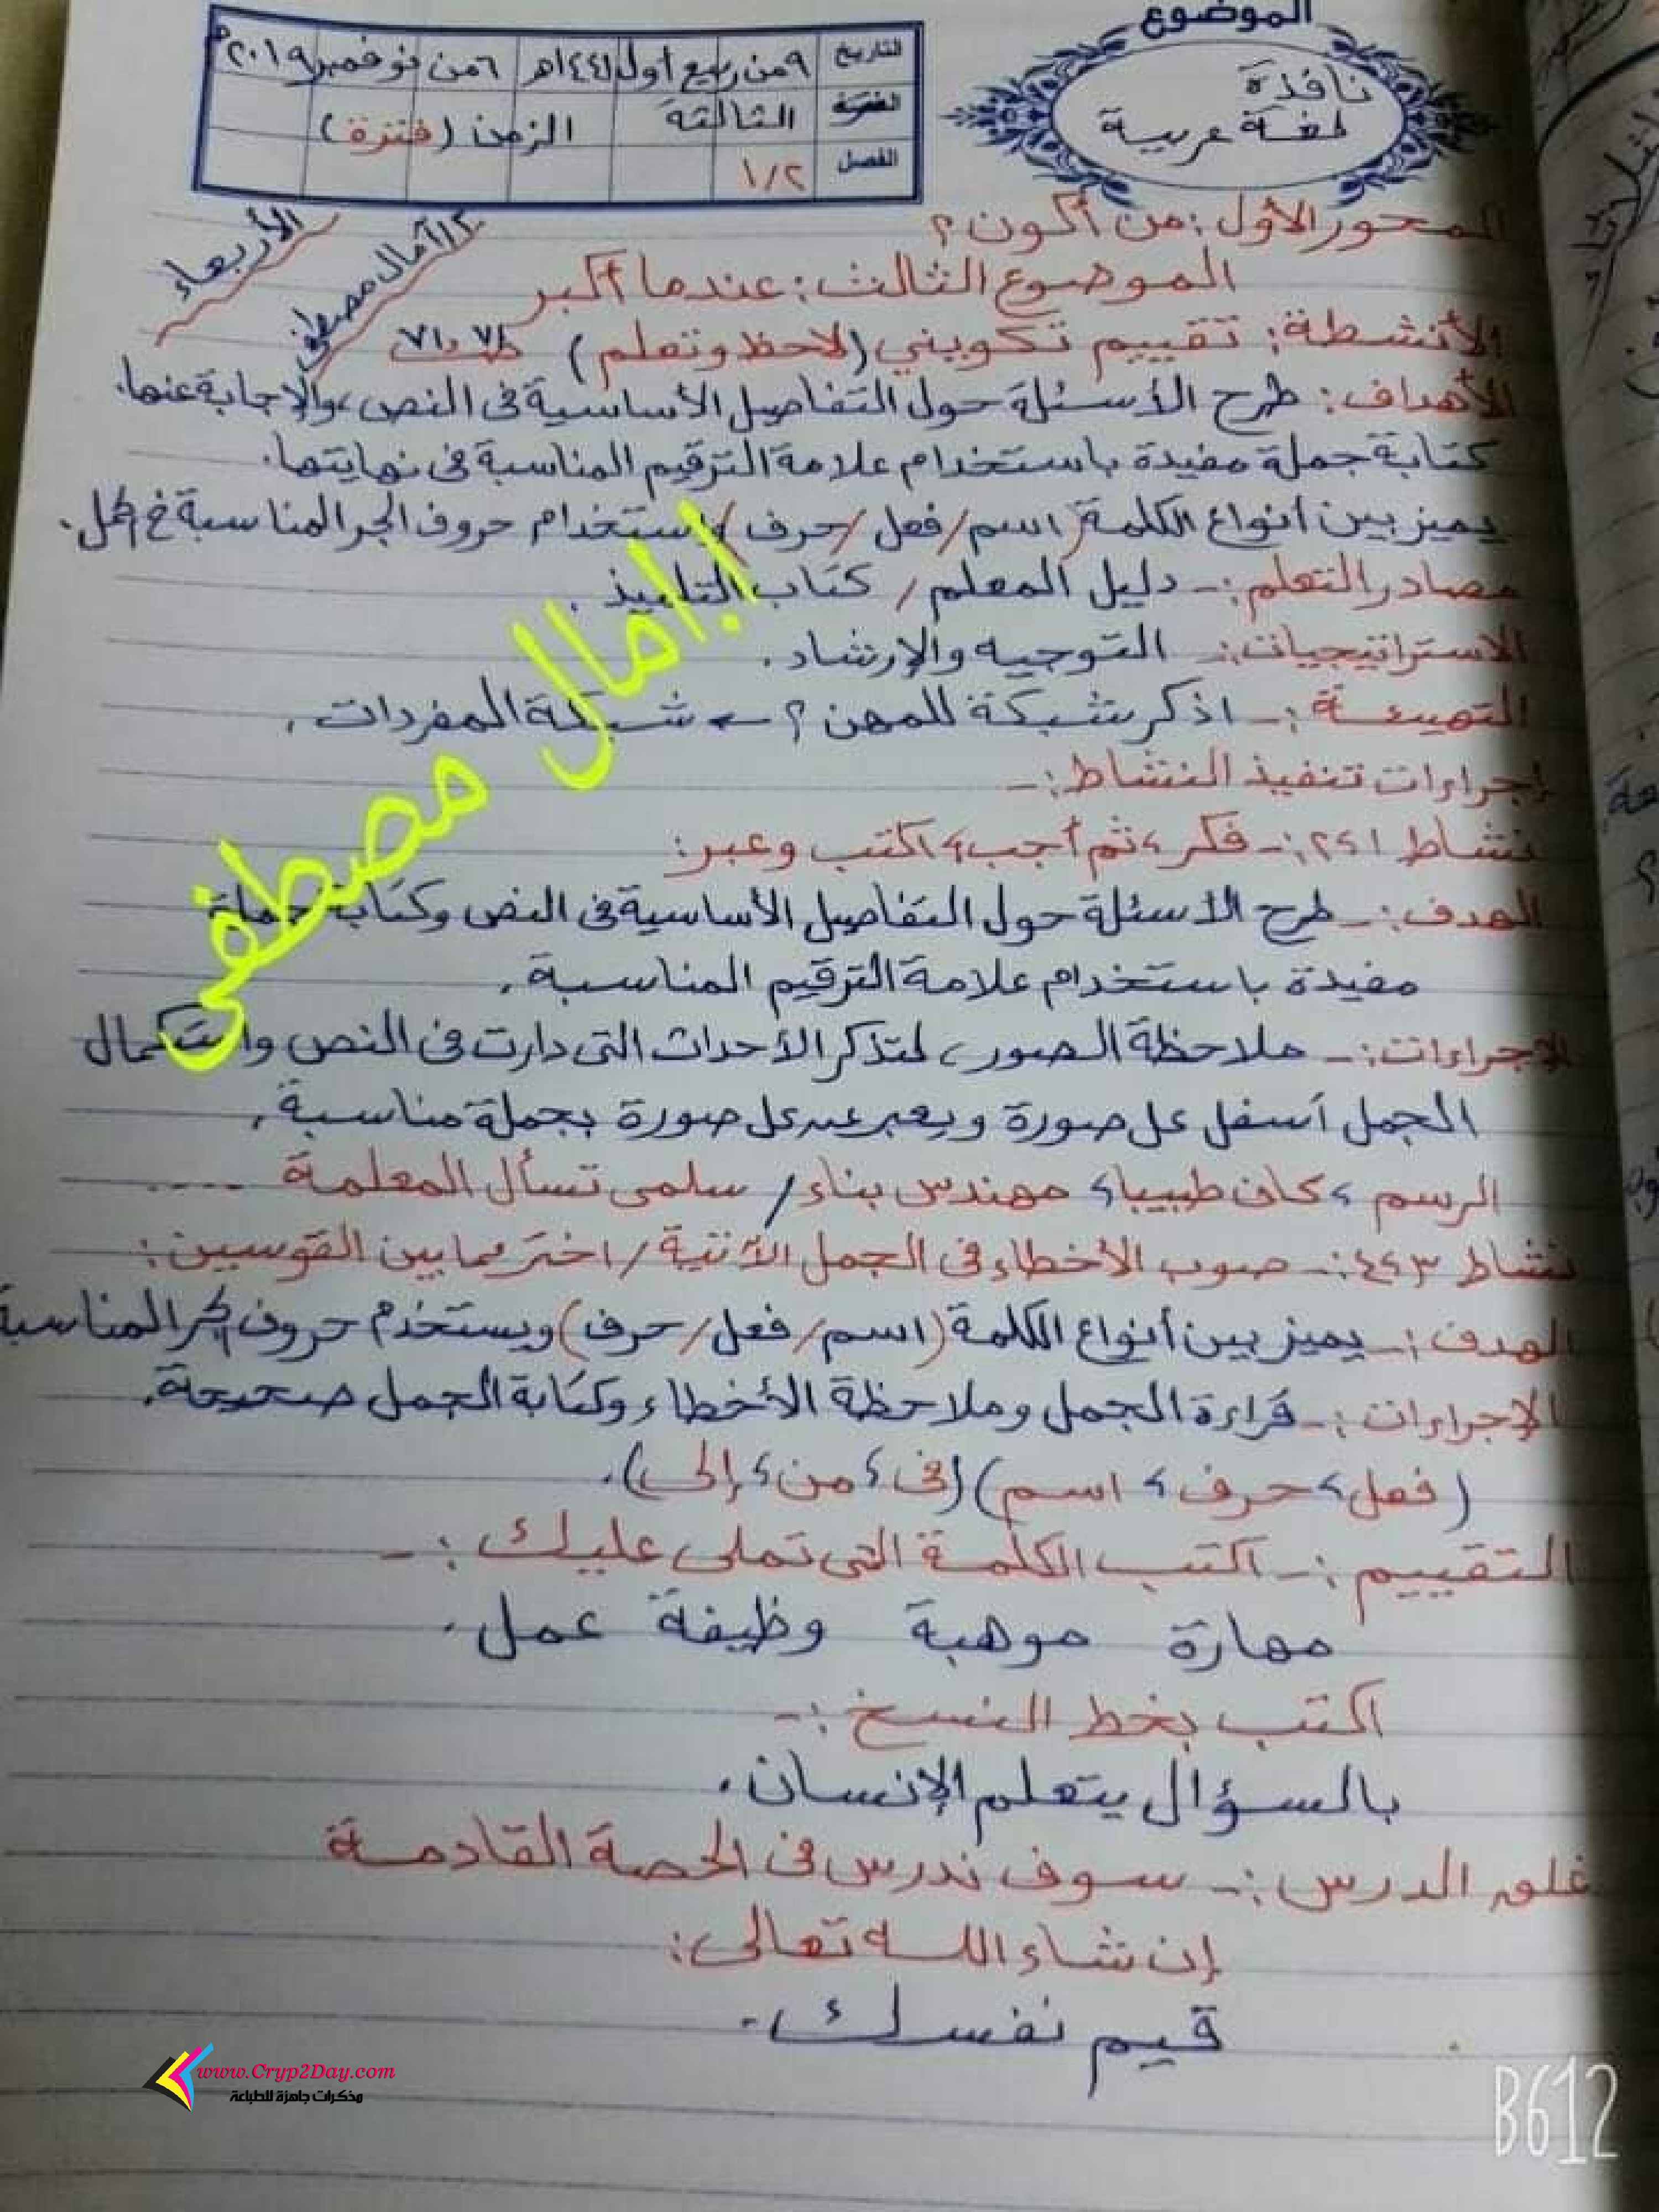 الموضوع
نافذة
لغة عربية
التاريخ ٩ من ربيع أول ١٤٤١هـ ٦ من نوفمبر ٢٠١٩م
الفترة الثالثة الزمن (فترة)
الفصل ١/٢
الأربعاء
أ/ آمال مصطفى
المحور الأول: من أكون؟
الموضوع الثالث: عندما أكبر
الأنشطة: تقييم تكويني (لاحظ وتعلم)
الأهداف: طرح الأسئلة حول التفاصيل الأساسية فى النص، والإجابة عنها.
كتابة جملة مفيدة باستخدام علامة الترقيم المناسبة فى نهايتها.
يميز بين أنواع الكلمة (اسم/فعل/حرف) واستخدام حروف الجر المناسبة
مصادر التعلم:- دليل المعلم / كتاب التلميذ.
الاستراتيجيات:- التوجيه والإرشاد.
التهيئة:- اذكر شبكة للمهن؟ ← شبكة المفردات.
إجراءات تنفيذ النشاط:-
نشاط ١، ٢:- فكر، ثم أجب، اكتب وعبر:
الهدف:- طرح الأسئلة حول التفاصيل الأساسية فى النص وكتابة جملة
مفيدة باستخدام علامة الترقيم المناسبة.
الإجراءات:- ملاحظة الصور، لتذكر الأحداث التى دارت فى النص واستكمال
الجمل أسفل كل صورة ويعبر عن كل صورة بجملة مناسبة.
الرسم، كان طبيبا، مهندس بناء / سلمى تسأل المعلمة ....
نشاط ٣، ٤:- صوب الأخطاء فى الجمل الآتية / اختر مما بين القوسين:
الهدف:- يميز بين أنواع الكلمة (اسم/فعل/حرف) ويستخدم حروف الجر المناسبة
الإجراءات:- قراءة الجمل وملاحظة الأخطاء وكتابة الجمل صحيحة.
(فعل، حرف، اسم) (فى، من، إلى).
التقييم:- اكتب الكلمة التى تملى عليك:-
مهارة موهبة وظيفة عمل.
اكتب بخط النسخ:-
بالسؤال يتعلم الإنسان.
غلق الدرس:- سوف ندرس فى الحصة القادمة
إن شاء الله تعالى:
قيم نفسك.
أ/ امال مصطفى
www.Cryp2Day.com
مذكرات جاهزة للطباعة
B612